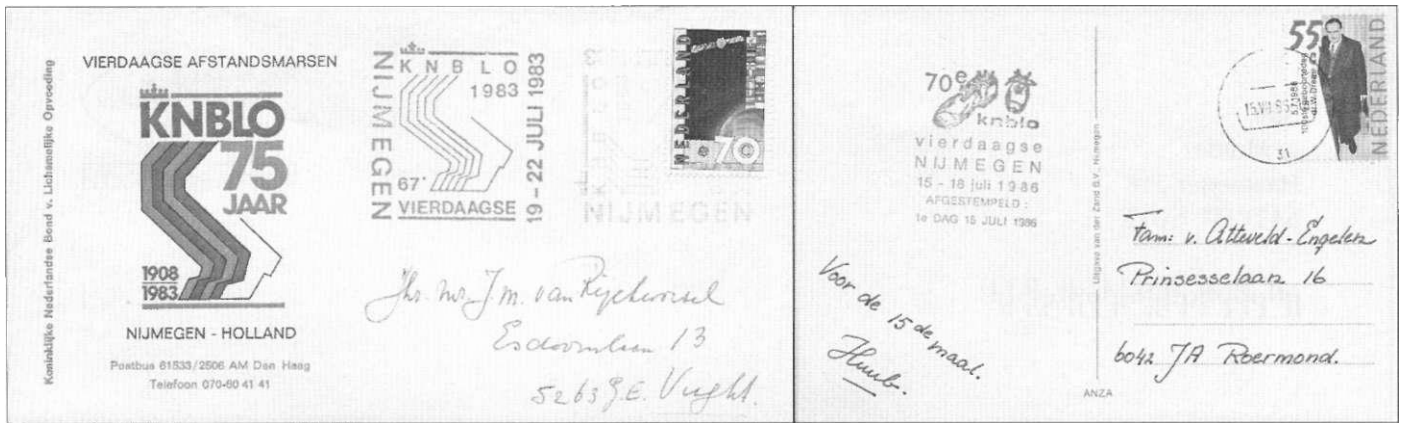 Koninklijke Nederlandse Bond v. Lichamelijke Opvoeding
VIERDAAGSE AFSTANDSMARSEN
KNBLO
75
JAAR
1908
1983
NIJMEGEN - HOLLAND
Postbus 61533/2506 AM Den Haag
Telefoon 070-60 41 41
NIJMEGEN
KNBLO
1983
67e
VIERDAAGSE
19-22 JULI 1983
NIJMEGEN
NEDERLAND
70
Jhr. Mr. J. M. van Rijckevorsel
Esdoornlaan 13
5263 G.E. Vught.
70e
knblo
vierdaagse
NIJMEGEN
15 - 18 juli 1986
AFGESTEMPELD :
1e DAG 15 JULI 1986
Voor de 15de maal.
Huub.
Uitgave van der Zand B.V., Nijmegen
ANZA
55
NEDERLAND
31
Fam: v. Atteveld-Engelen
Prinsesselaan 16
6042 JA Roermond.